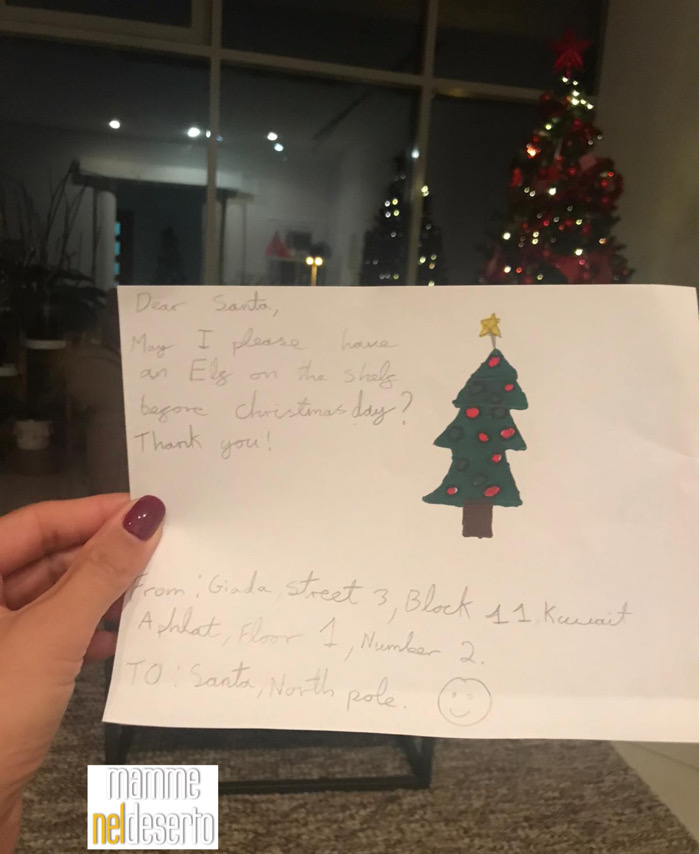 Dear Santa,
May I please have
an Elf on the shelf
before christmas day?
Thank you!
From: Giada, Street 3, Block 11 Kuwait
Floor 1, Number 2.
TO: Santa, North pole.
mamme
neldeserto